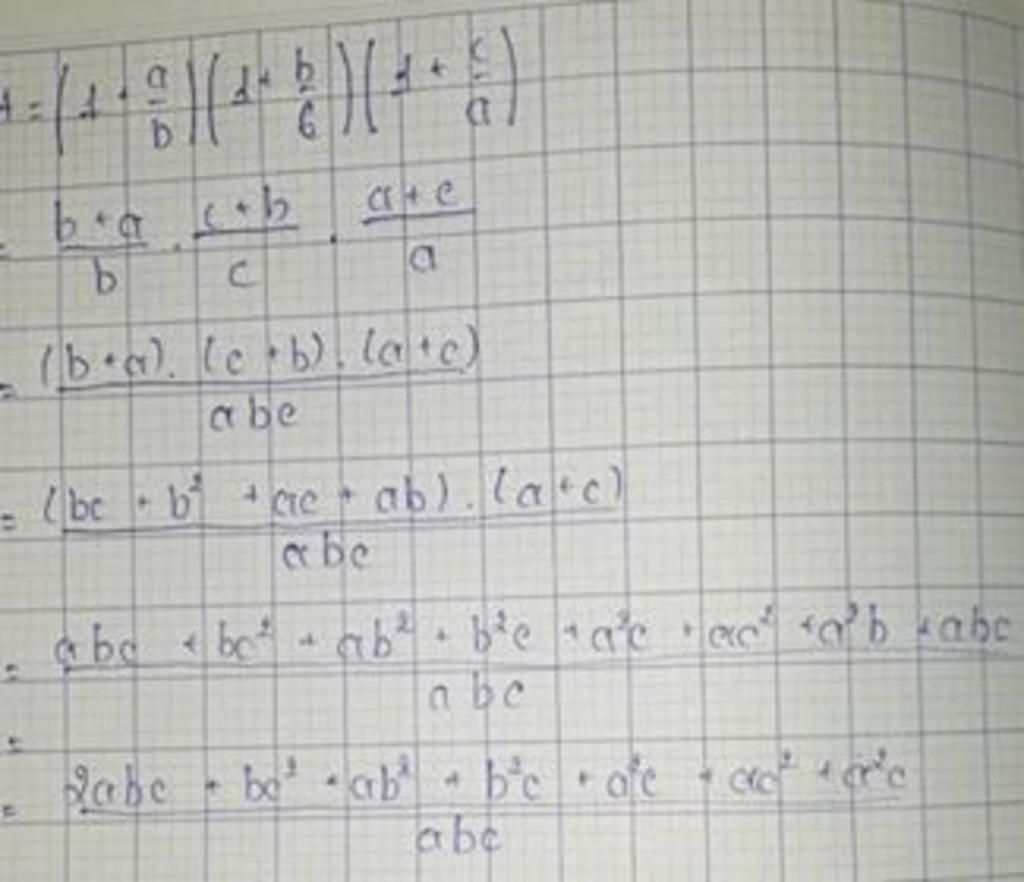 A = (1 + a/b)(1 + b/6)(1 + c/a)
= b + a/b . c + b/c . a + c/a
= (b + a) . (c + b) . (a + c)/abc
= (bc + b² + ac + ab) . (a + c)/abc
= abc + bc² + ab² + b²c + a²c + ac² + a²b + abc/abc
=
= 2abc + bc² + ab² + b²c + a²c + ac² + a²c/abc